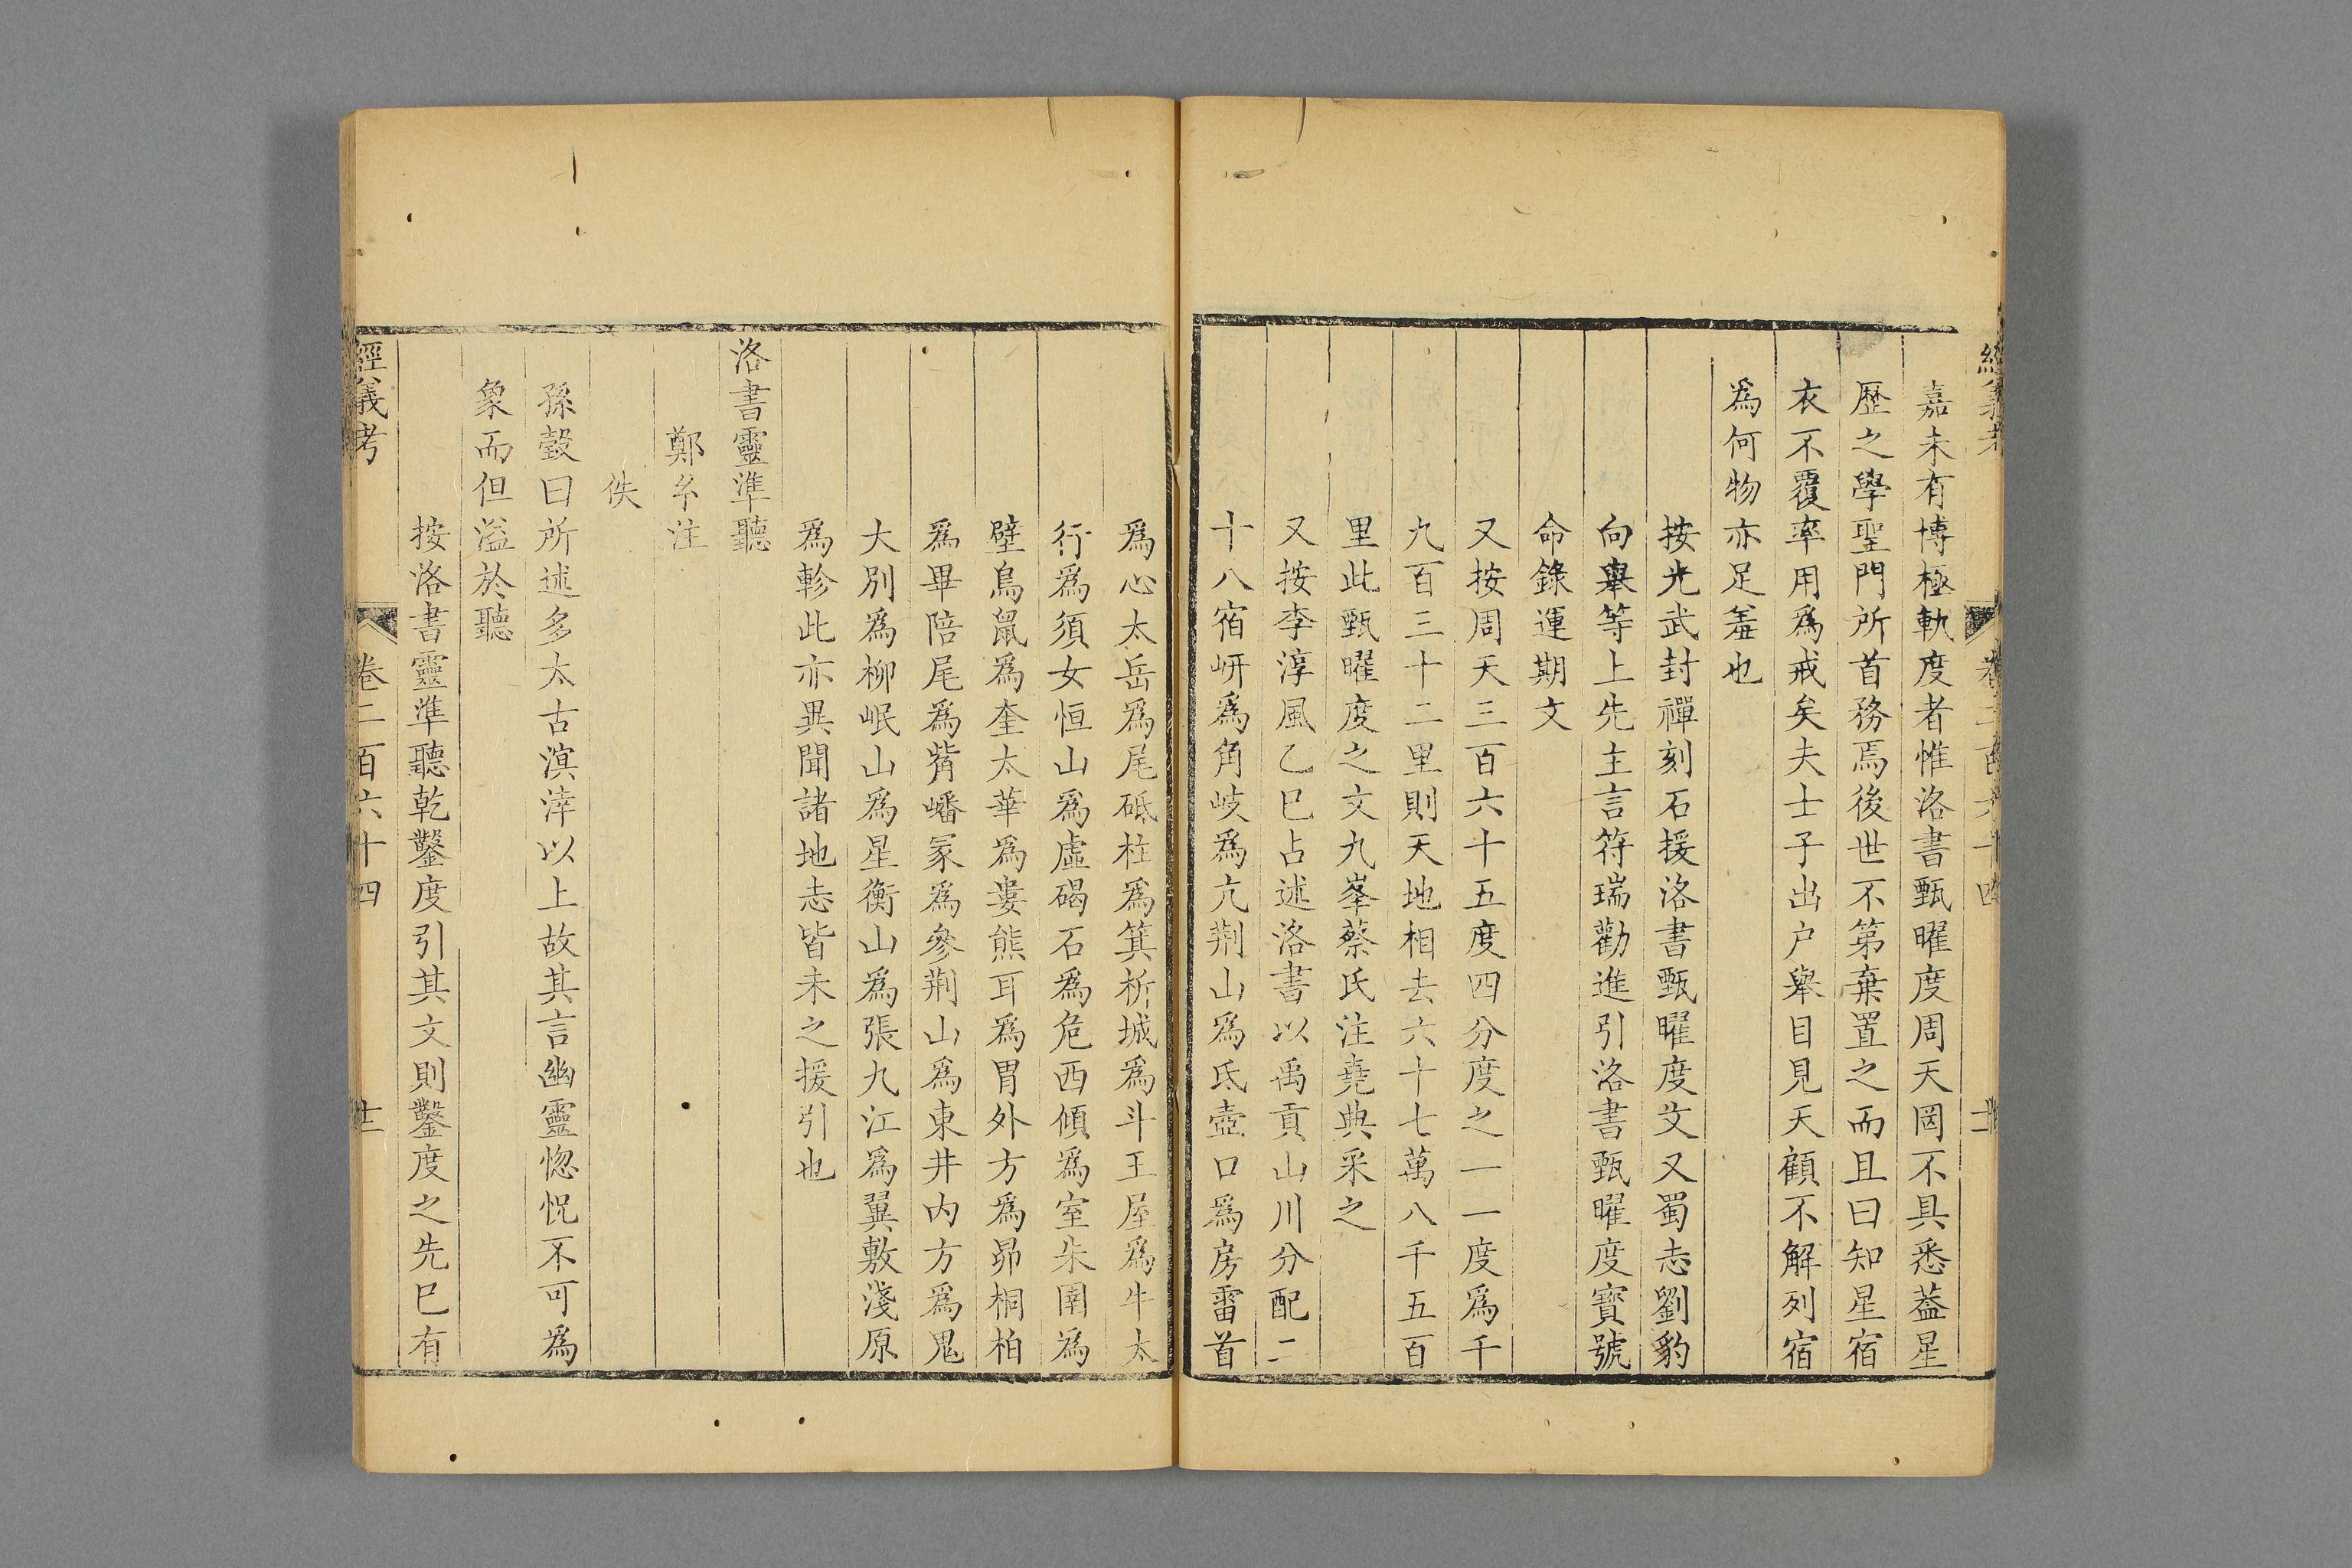 嘉未有博極軌度者惟洛書甄曜度周天罔不具悉葢星
歷之學聖門所首務焉後世不第棄置之而且曰知星宿
衣不覆率用爲戒矣夫士子出户舉目見天顧不解列宿
爲何物亦足羞也
按光武封禪刻石援洛書甄曜度文又蜀志劉豹
向舉等上先主言符瑞勸進引洛書甄曜度寶號
命錄運期文
又按周天三百六十五度四分度之一一度爲千
九百三十二里則天地相去六十七萬八千五百
里此甄曜度之文九峯蔡氏注堯典采之
又按李淳風乙巳占述洛書以禹貢山川分配二
十八宿岍爲角岐爲亢荆山爲氐壺口爲房雷首
爲心太岳爲尾砥柱爲箕析城爲斗王屋爲牛太
行爲須女恒山爲虛碣石爲危西傾爲室朱圉爲
壁鳥鼠爲奎太華爲婁熊耳爲胃外方爲昴桐柏
爲畢陪尾爲觜嶓冢爲參荆山爲東井内方爲鬼
大別爲柳岷山爲星衡山爲張九江爲翼敷淺原
爲軫此亦異聞諸地志皆未之援引也
洛書靈準聽
鄭氏注
佚
孫瑴曰所述多太古溟涬以上故其言幽靈惚怳不可爲
象而但溢於聽
按洛書靈準聽乾鑿度引其文則鑿度之先已有
經義考
卷二百六十四